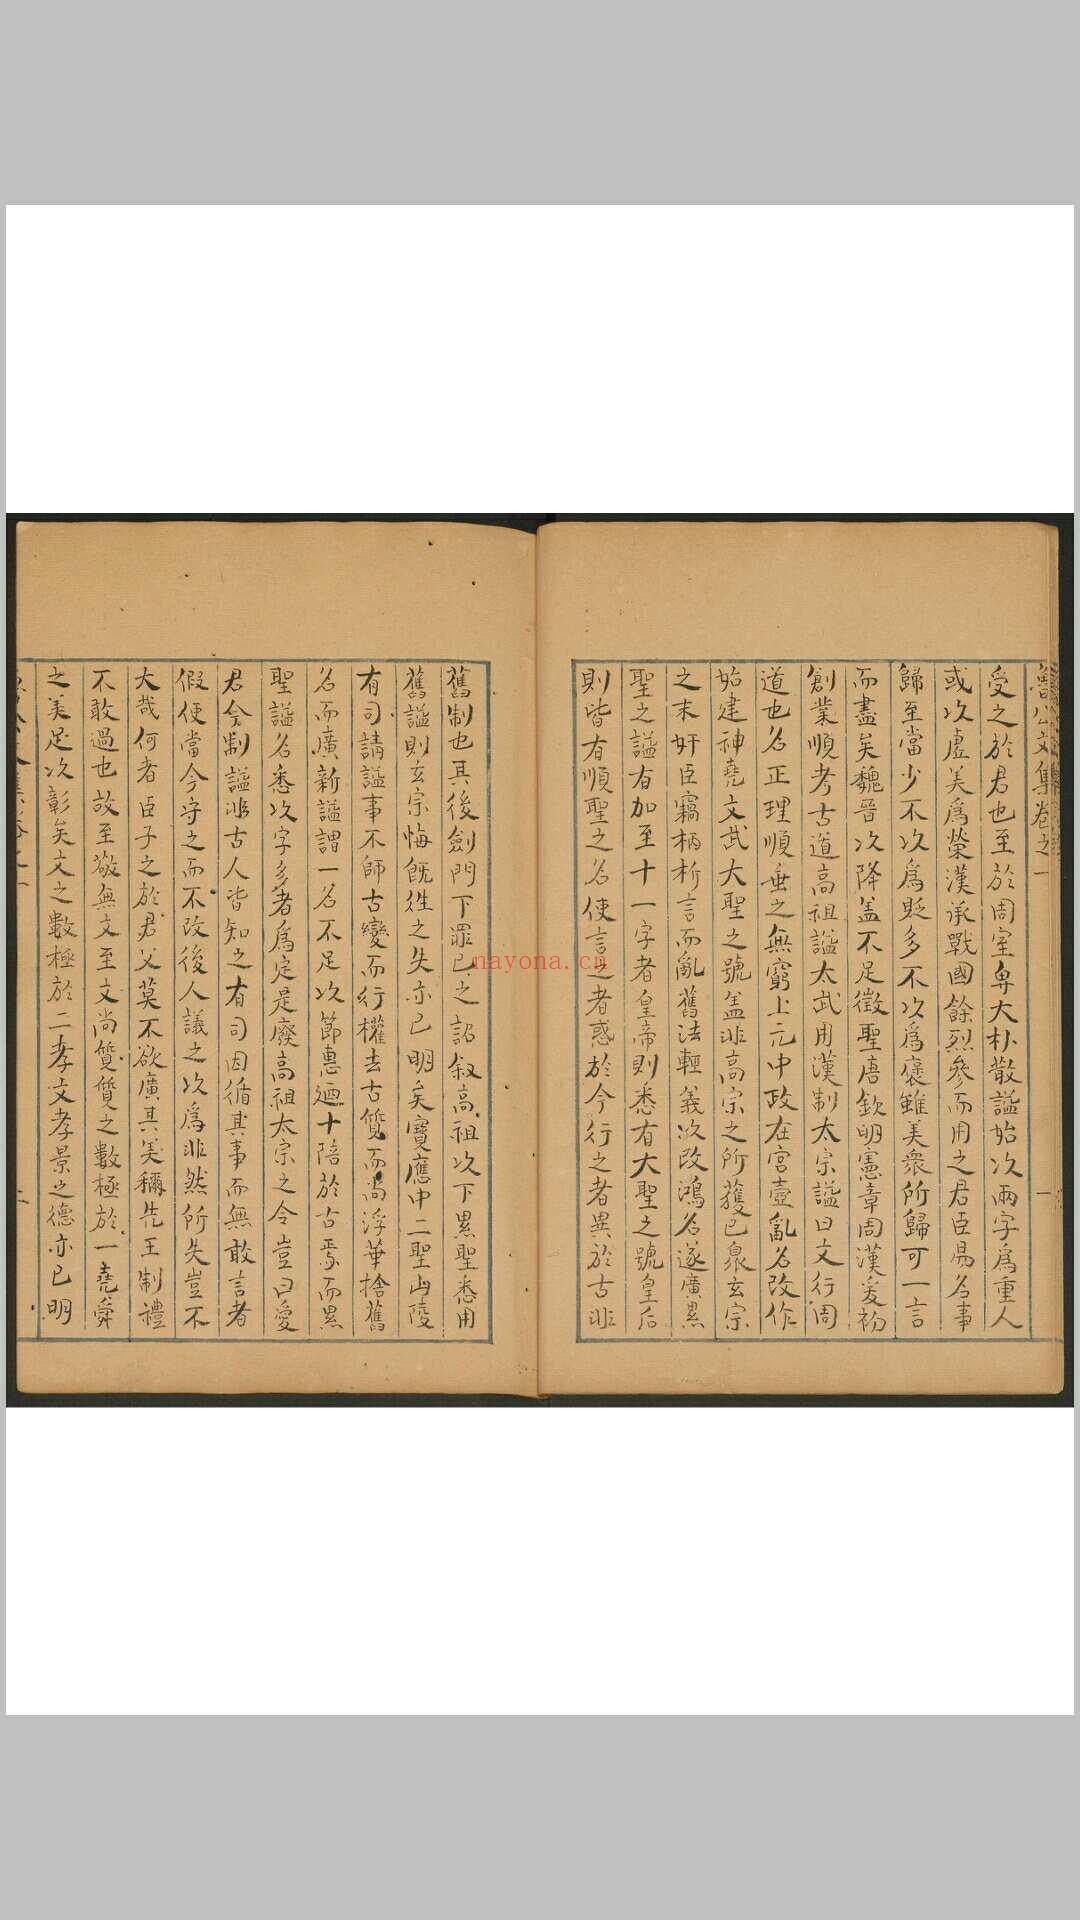 魯公文集卷之一 一
受之於君也至於周室卑大朴散諡始以兩字爲重人
或以虛美爲榮漢承戰國餘烈參而用之君臣易名事
歸至當少不以爲貶多不以爲褒雖美衆所歸可一言
而盡矣魏晉以降盖不足徵聖唐欽明憲章周漢爰初
創業順考古道高祖諡太武用漢制太宗諡曰文行周
道也名正理順垂之無窮上元中政在宮壼亂名改作
始建神堯文武大聖之號盖非高宗之所獲已泉玄宗
之末奸臣竊柄析言而亂舊法輕義以改鴻名遂廣累
聖之諡有加至十一字者皇帝則悉有大聖之號皇后
則皆有順聖之名使言之者惑於今行之者異於古非
舊制也其後劍門下罪已之詔叙高祖以下累聖悉用
舊諡則玄宗悔旣徃之失亦已明矣寶應中二聖山陵
有司請諡事不師古變而行權去古質而尚浮華捨舊
名而廣新諡謂一名不足以節惠廼十陪於古焉而累
聖諡名悉以字多者爲定是廢高祖太宗之令豈曰愛
君今制諡非古人皆知之有司因循其事而無敢言者
假使當今守之而不改後人議之以爲非然所失豈不
大哉何者臣子之於君父莫不欲廣其美稱先王制禮
不敢過也故至敬無文至文尚質質之數極於一堯舜
之美足以彰矣文之數極於二孝文孝景之德亦已明
nayona.cn